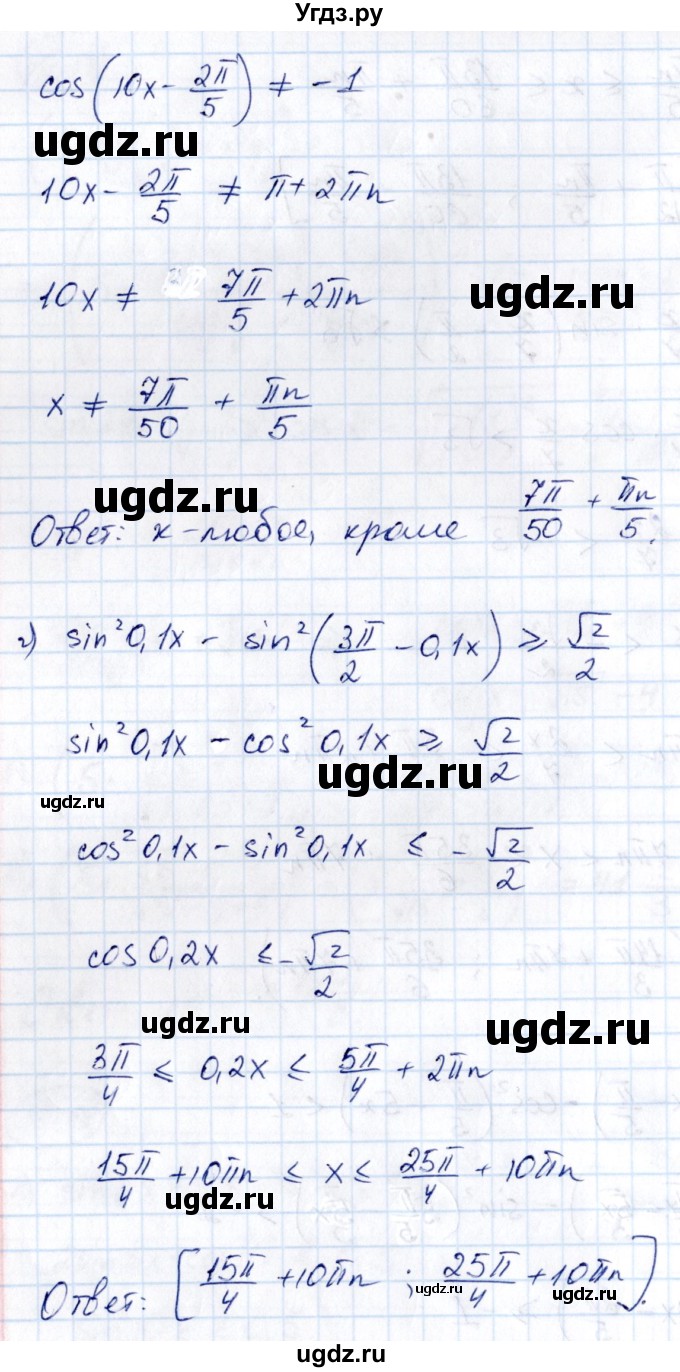 Угдз.ру
cos(10x - 2π/5) ≠ -1
ugdz.ru
10x - 2π/5 ≠ π + 2πn
10x ≠ 7π/5 + 2πn
ugdz.ru
x ≠ 7π/50 + πn/5
ugdz.ru
Ответ: x - любое, кроме 7π/50 + πn/5.
г) sin²0,1x - sin²(3π/2 - 0,1x) ⩾ √2/2
sin²0,1x - cos²0,1x ⩾ √2/2
ugdz.ru
ugdz.ru
cos²0,1x - sin²0,1x ⩽ -√2/2
cos0,2x ⩽ -√2/2
ugdz.ru
ugdz.ru
3π/4 ⩽ 0,2x ⩽ 5π/4 + 2πn
15π/4 + 10πn ⩽ x ⩽ 25π/4 + 10πn
ugdz.ru
Ответ: [15π/4 + 10πn ; 25π/4 + 10πn].
ugdz.ru
ugdz.ru
ugdz.ru